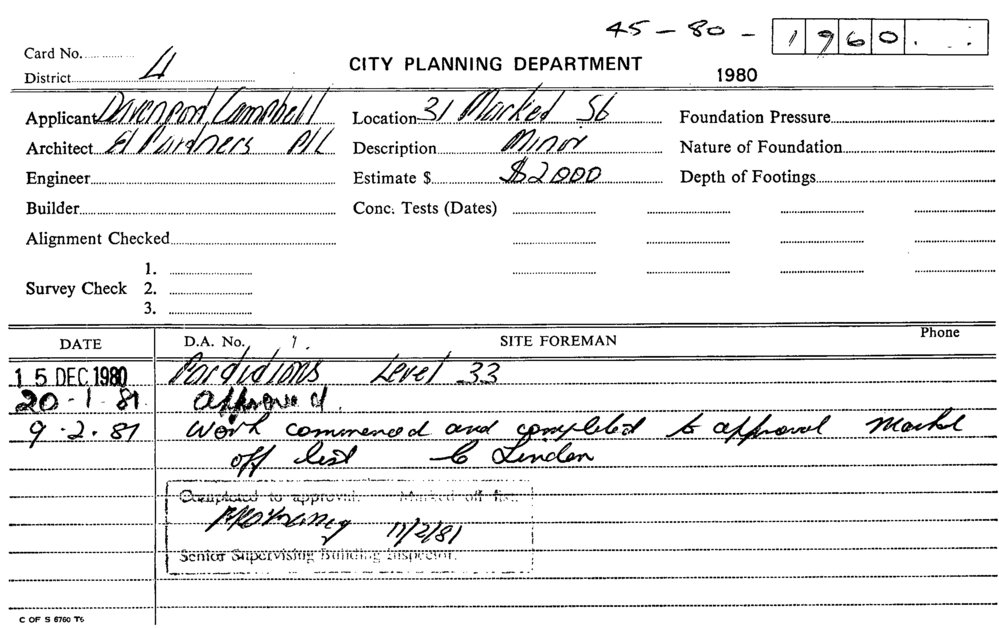 45 - 80 - 1960
Card No.
District 4
CITY PLANNING DEPARTMENT
1980
Applicant Davenport Campbell
Location 31 Market St
Foundation Pressure
Architect & Partners P/L
Description Minor
Nature of Foundation
Engineer
Estimate $ $2000
Depth of Footings
Builder
Conc. Tests (Dates)
Alignment Checked
1.
Survey Check 2.
3.
DATE D.A. No. SITE FOREMAN Phone
15 DEC 1980 Partitions Level 33
20-1-81. approved.
9.2.81 work commenced and completed to approval Markd
off list C Linden
Completed to approval. Marked off list
11/2/81
Senior Supervising Building Inspector.
C OF S 6760 T6